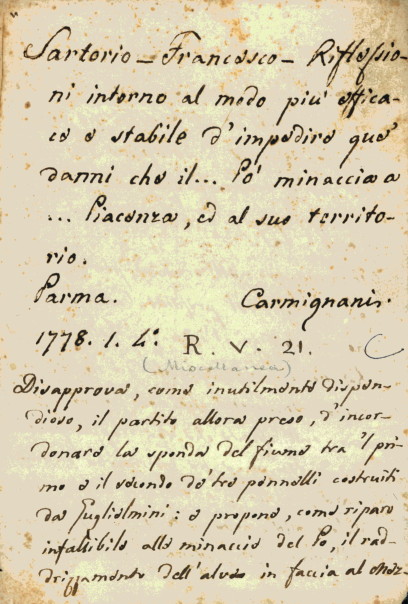 Sartorio - Francesco - Riflessio-
ni intorno al modo più effica-
ce e stabile d'impedire que'
danni che il... Po' minaccia a
... Piacenza, ed al suo territo-
rio.
Parma. Carmignani.
1778. 1. 4.° R. V. 21.
(Miscellanea)
Disapprova, come inutilmente dispen-
dioso, il partito allora preso, d'incor-
donare la sponda del fiume tra 'l pri-
mo e il secondo de' tre pennelli costruiti
da Guglielmini: e propone, come riparo
infallibile alle minaccie del Po, il rad-
drizzamento dell'alveo in faccia al